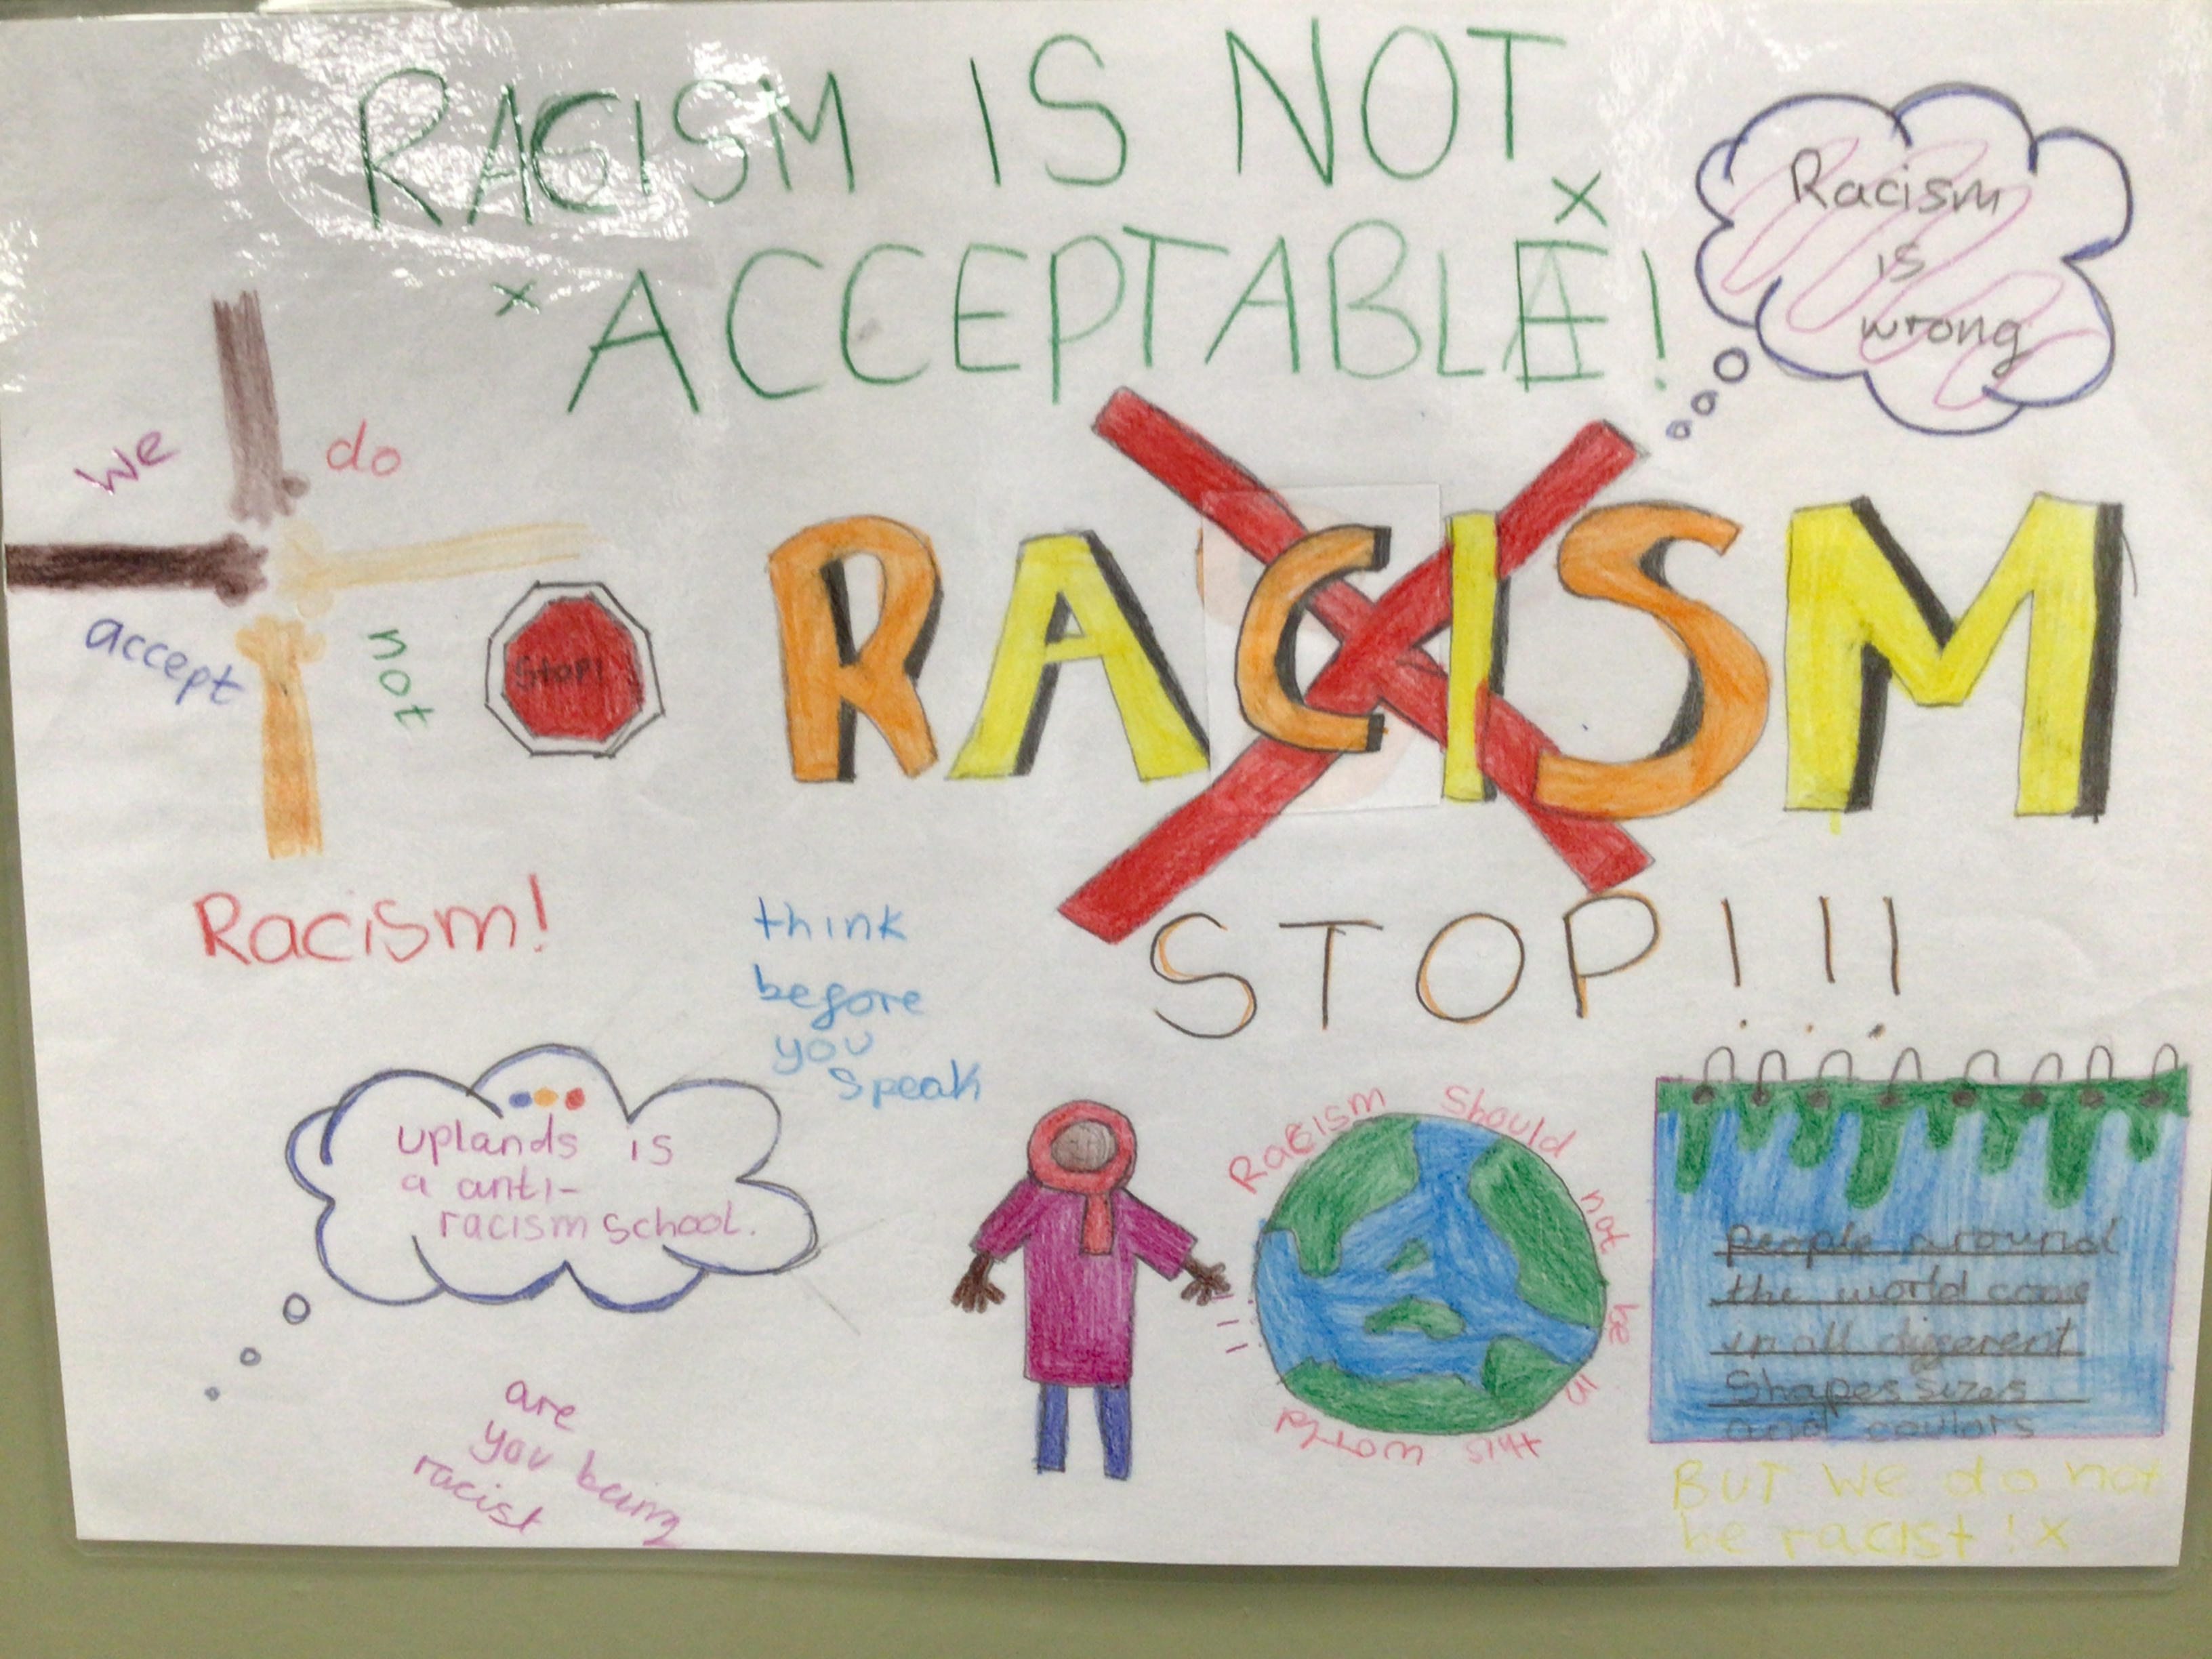 RACISM IS NOT
ACCEPTABLE!
Racism
is
wrong
We do
accept not
Racism!
STOP!
RACISM
STOP!!!
think
before
you
speak
uplands is
a anti-
racism school.
are
you being
racist
Racism should not be in this world !!!
people around
the world come
in all different
shapes sizes
and coulors
BUT we do not
be racist! x